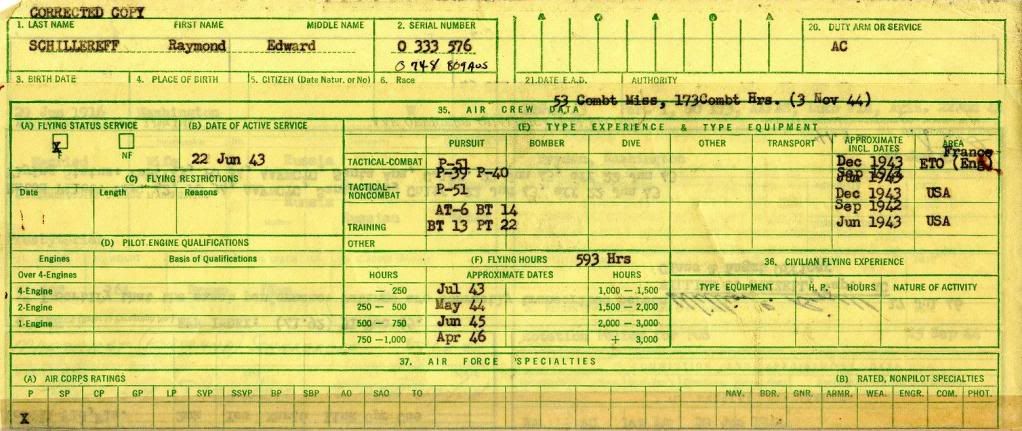 CORRECTED COPY
1. LAST NAME FIRST NAME MIDDLE NAME 2. SERIAL NUMBER A C A B A 20. DUTY ARM OR SERVICE
SCHILLEREFF Raymond Edward O 333 576 AC
O 748
3. BIRTH DATE 4. PLACE OF BIRTH 5. CITIZEN (Date Natur. or No) 6. Race 21. DATE E.A.D. AUTHORITY
53 Combt Miss, 173Combt Hrs. (3 Nov 44)
35. AIR CREW DATA
(A) FLYING STATUS SERVICE (B) DATE OF ACTIVE SERVICE (E) TYPE EXPERIENCE & TYPE EQUIPMENT
X F NF 22 Jun 43
PURSUIT BOMBER DIVE OTHER TRANSPORT APPROXIMATE INCL. DATES AREA
France
TACTICAL-COMBAT P-51 Dec 1943 ETO (Eng)
(C) FLYING RESTRICTIONS P-39 P-40 Sep 1943
Jun 1943
Date Length Reasons TACTICAL-NONCOMBAT P-51 Dec 1943 USA
AT-6 BT 14 Sep 1942
TRAINING BT 13 PT 22 Jun 1943 USA
(D) PILOT ENGINE QUALIFICATIONS OTHER
Engines Basis of Qualifications (F) FLYING HOURS 593 Hrs 36. CIVILIAN FLYING EXPERIENCE
Over 4-Engines HOURS APPROXIMATE DATES HOURS
4-Engine — 250 Jul 43 1,000 — 1,500 TYPE EQUIPMENT H. P. HOURS NATURE OF ACTIVITY
2-Engine 250 — 500 May 44 1,500 — 2,000
1-Engine 500 — 750 Jun 45 2,000 — 3,000
750 — 1,000 Apr 46 + 3,000
37. AIR FORCE SPECIALTIES
(A) AIR CORPS RATINGS (B) RATED, NONPILOT SPECIALTIES
P SP CP GP LP SVP SSVP BP SBP AO SAO TO NAV. BDR. GNR. ARMR. WEA. ENGR. COM. PHOT.
X